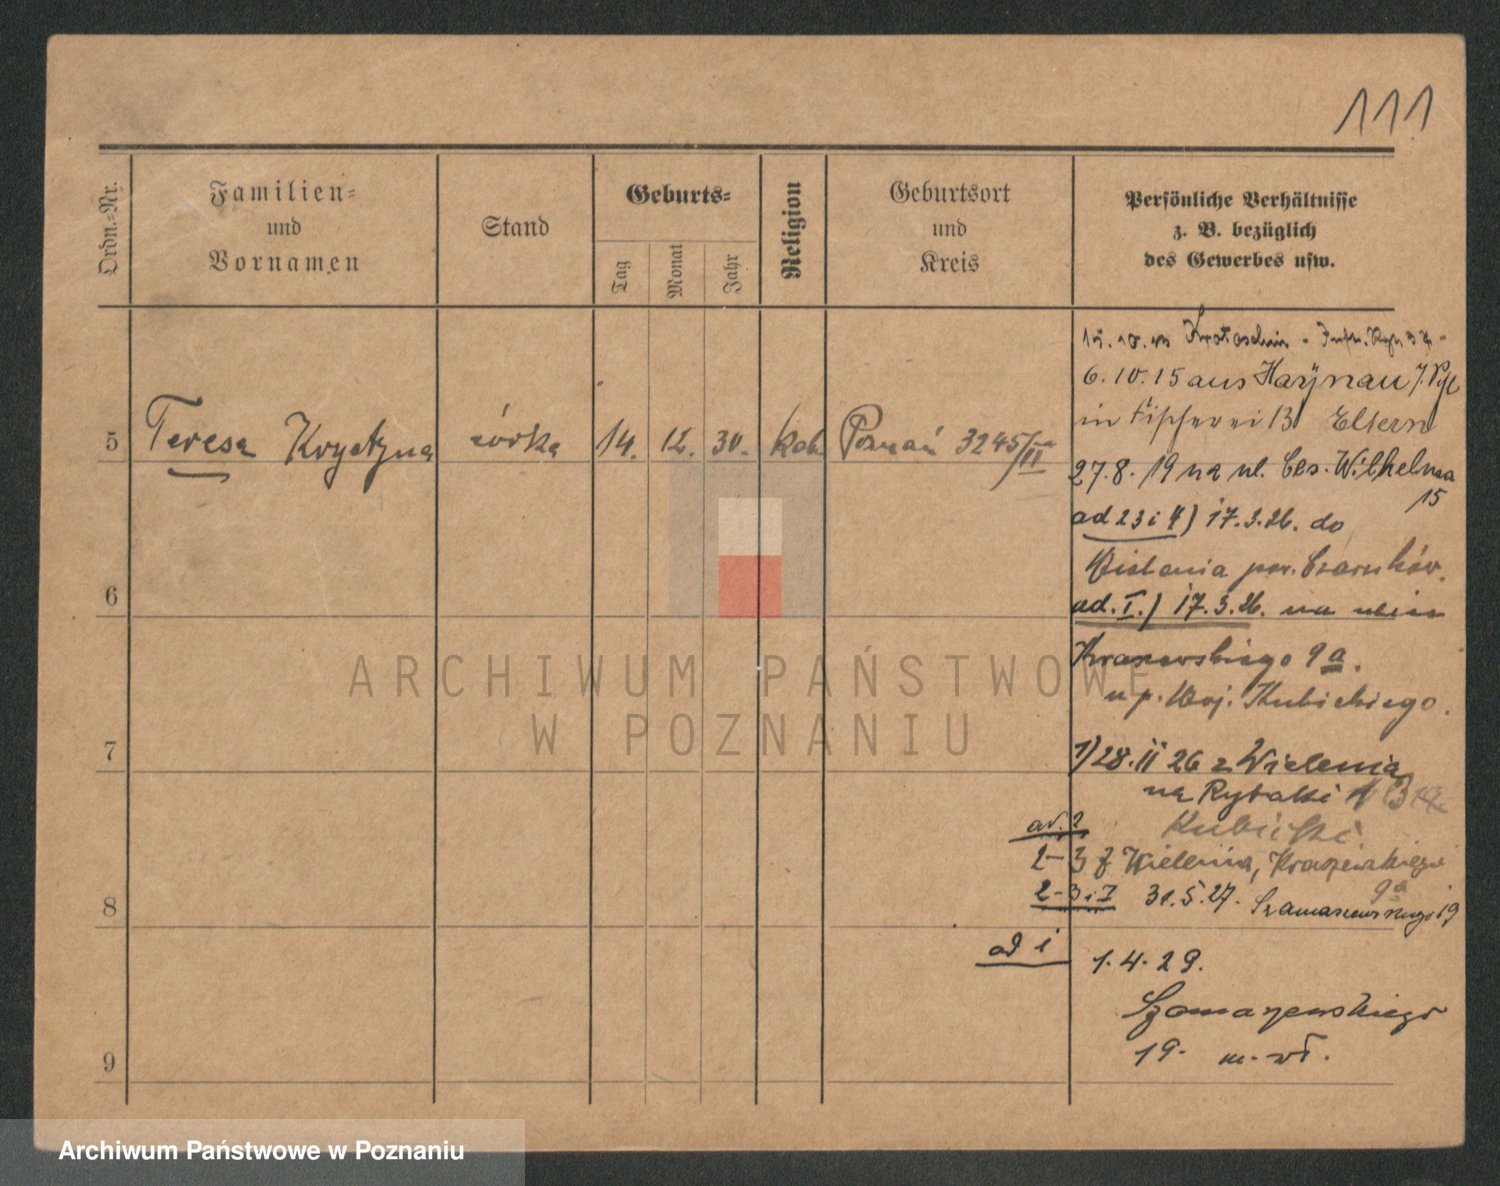 111
Ordn.-Nr.
Familien-
und
Vornamen
Stand
Geburts-
Tag
Monat
Jahr
Religion
Geburtsort
und
Kreis
Persönliche Verhältnisse
z. B. bezüglich
des Gewerbes usw.
5 Teresa Krystyna córka 14. 12. 30. kat. Poznań 3245/II
6
7
8
9
15. 10. Krotoschin - Inf. Rgt. 37.
6. 10. 15 aus Haynau
in Fischerei 13 Eltern
27. 8. 19 na ul. Ces. Wilhelma
15
ad 2 3 i 4) 17. 3. 26. do
Wielenia pow. Czarnków.
ad. I.) 17. 3. 26. na ulicę
Kraszewskiego 9a.
u p. Woj. Kubickiego.
1) 28. II 26 z Wielenia
na Rybaki
Kubicki
ad. 2
2-3 z Wielenia, Kraszewskiego
9a
2-3 i I 31. 5. 27. Szamarzewskiego 19
ad i 1. 4. 29.
Szamarzewskiego
19. m. wł.
ARCHIWUM PAŃSTWOWE
W POZNANIU
Archiwum Państwowe w Poznaniu